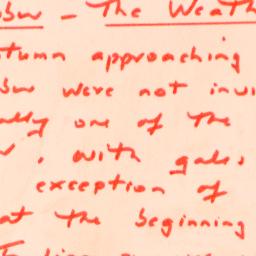 – The Weath
tumn approaching
were not invi
ally one of the
, with gales,
exception of
at the beginning